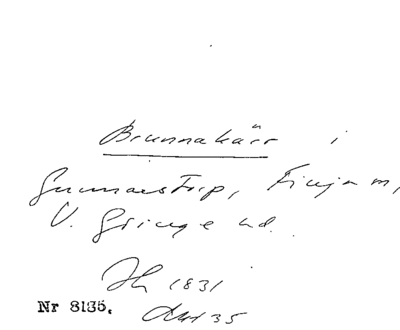 Brunnakärr i
Gunnarstorp, Finja sn,
V. Göinge hd.
1831
Nr 8135. Akt 35